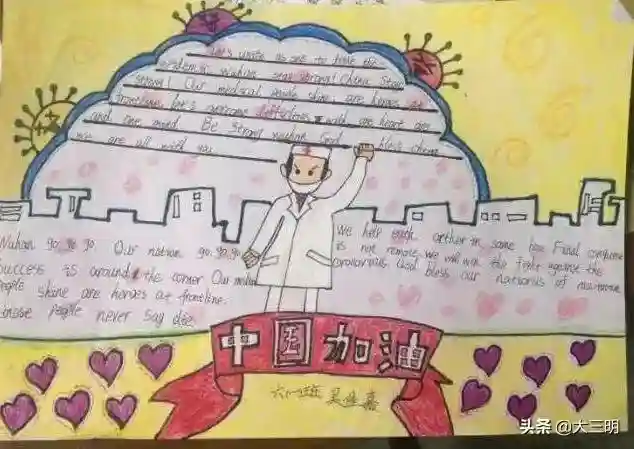 Let's unite as one to fight the
epidemic wuhan stay strong! China stay
strong! Our medical people shine are heroes at
frontline. Let's overcome with one heart
and one mind. Be strong wuhan God bless china
we are all with you
Wuhan go go go. Our nation go. go. go
success is around the corner Our
people shine are heroes at frontline.
people never say die.
We help each orther in same
is not remote we will win the fight against the
coronavirus God bless our
中国加油
六
头条 @大三明